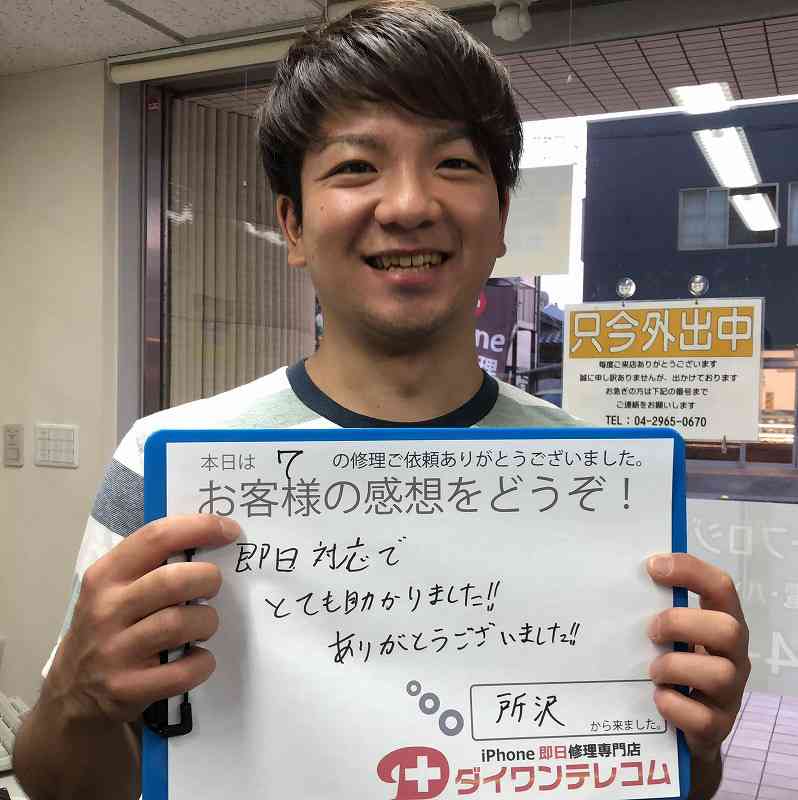 只今外出中
毎度ご来店ありがとうございます
誠に申し訳ありませんが、出かけております
お急ぎの方は下記の番号まで
ご連絡をお願いします
TEL：04-2965-0670
本日は 7 の修理ご依頼ありがとうございました。
お客様の感想をどうぞ！
即日対応で
とても助かりました!!
ありがとうございました!!
所沢 から来ました。
iPhone 即日修理専門店
ダイワンテレコム